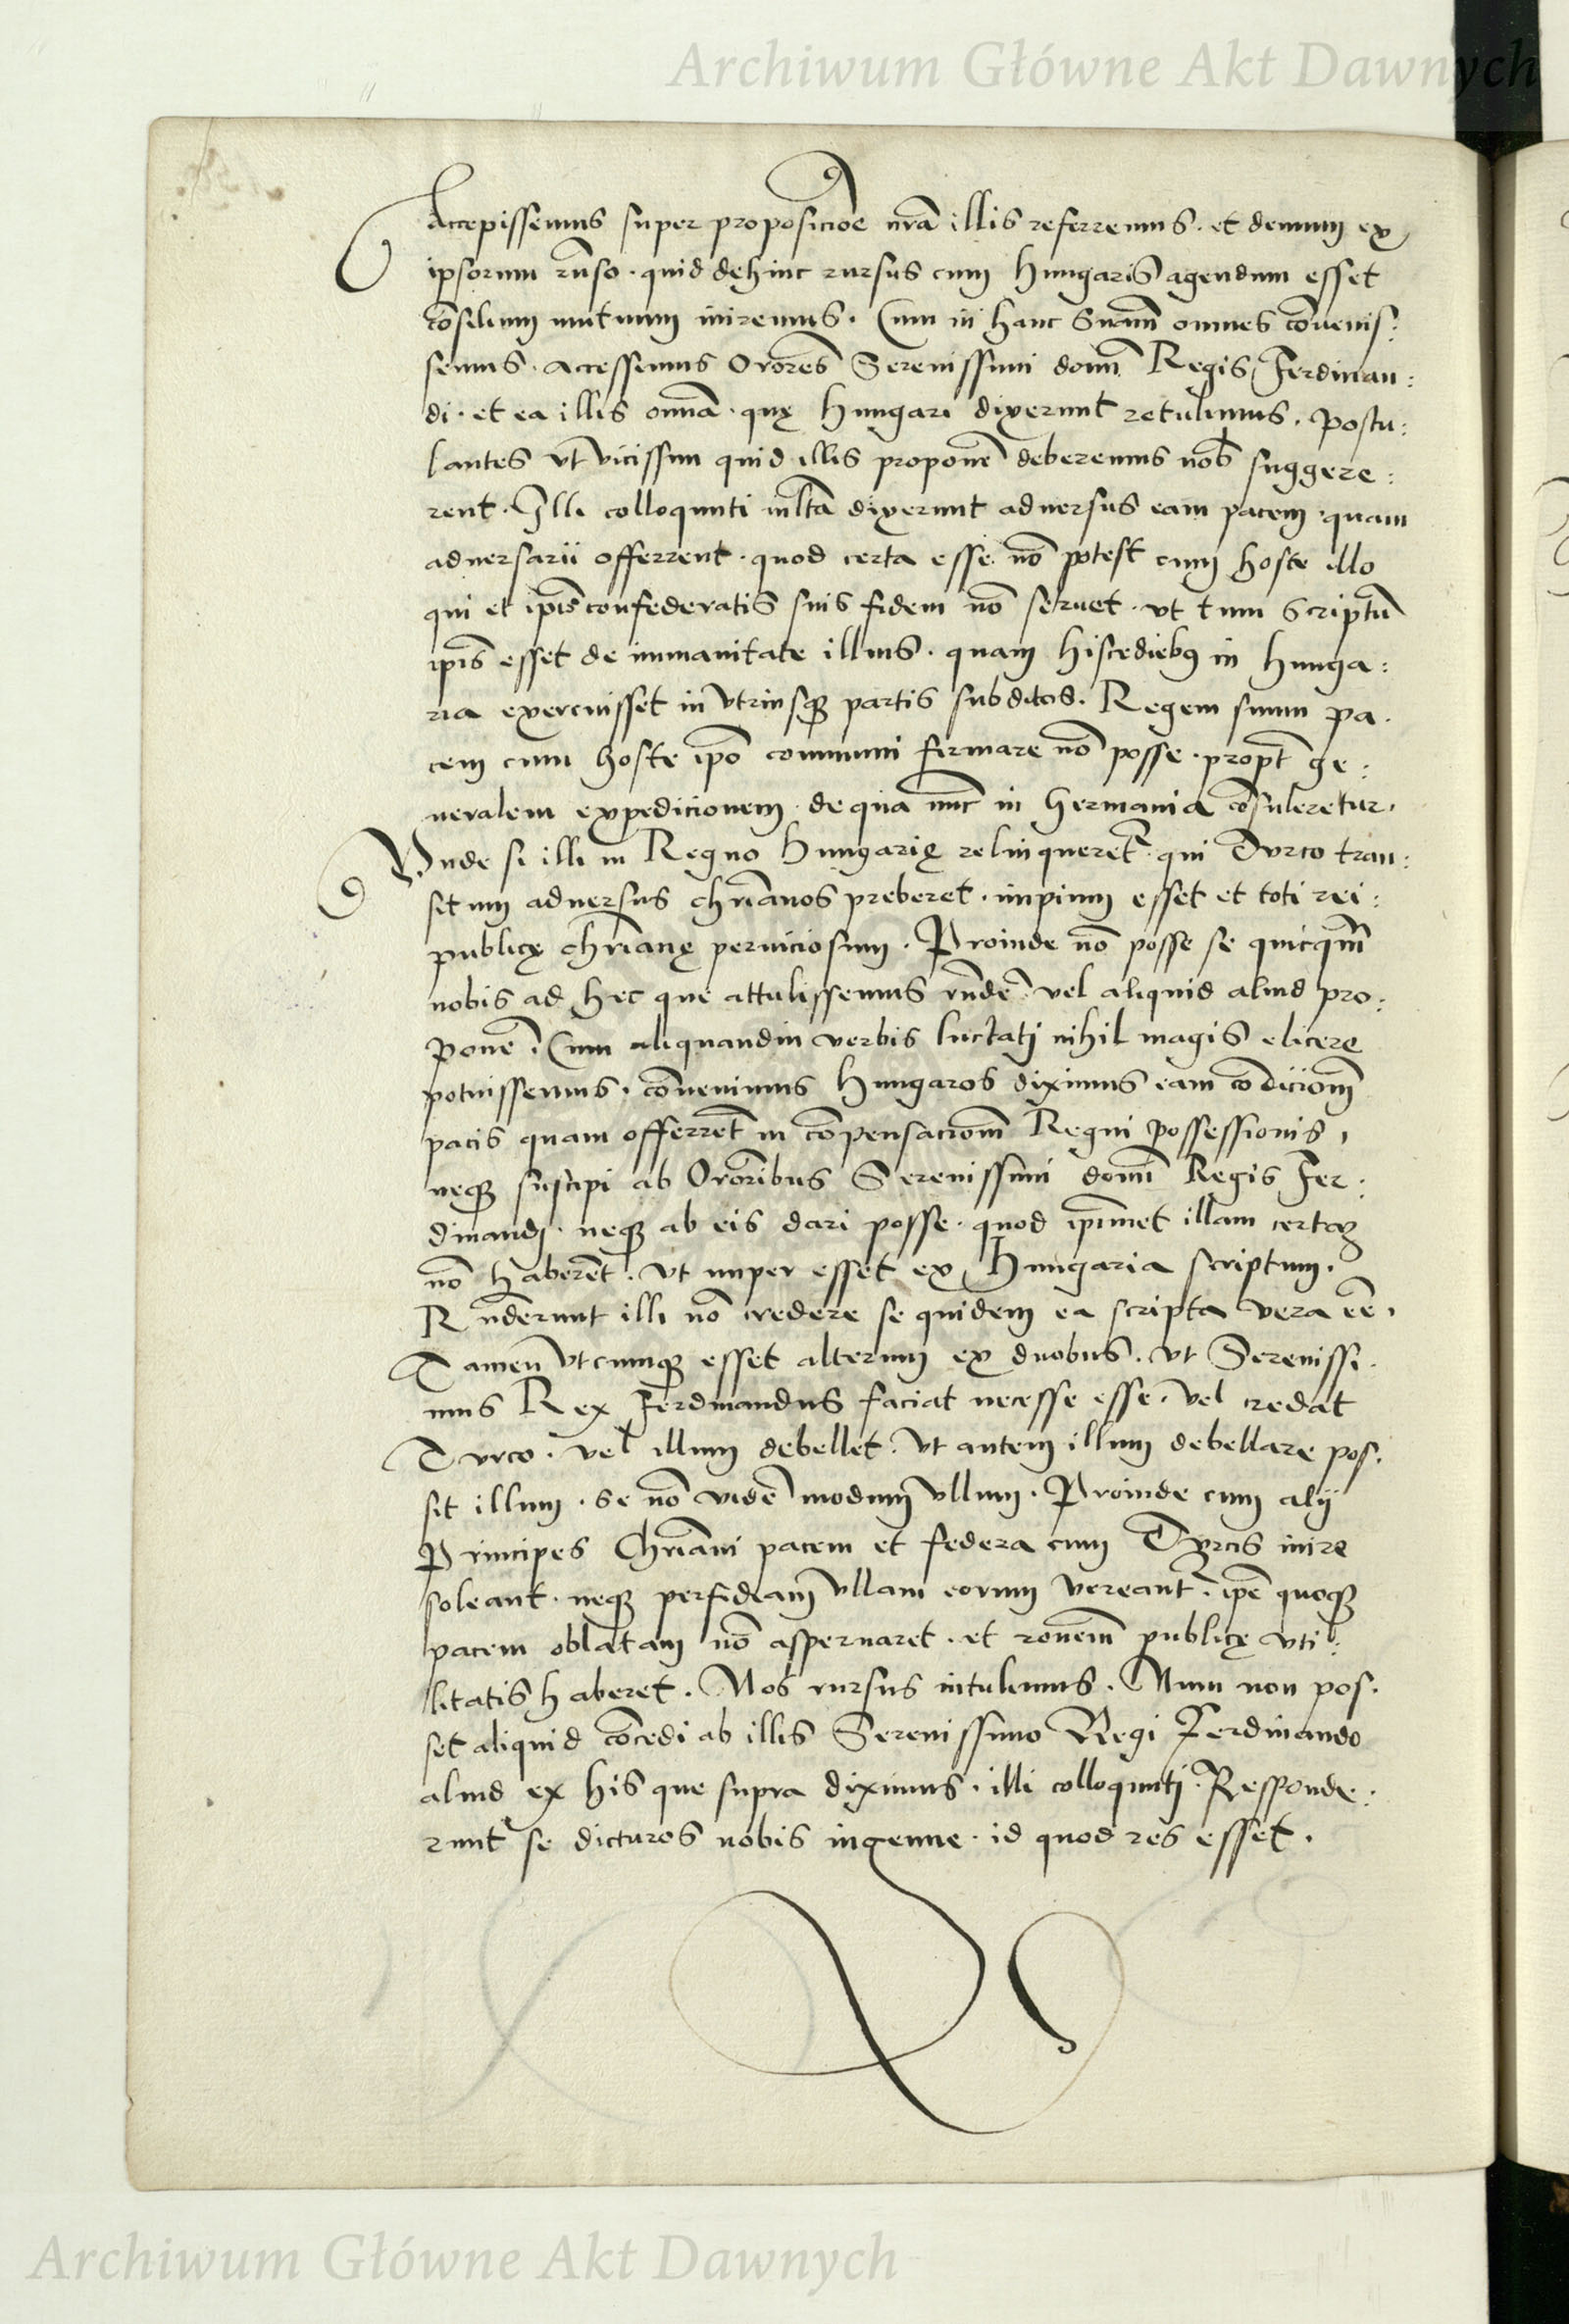 Archiwum Główne Akt Dawnych
Accepissemus super proposicioe nrã illis referremus. et demum ex
ipsorum rñso. quid dehinc rursus cum Hungaris agendum esset
cõsilium mutuum iniremus. Cum in hanc sniam omnes cõuenis:
semus. accessemus Orores Serenissimi domi Regis Ferdinan:
di. et ea illis omnia. quę Hungari dixerunt retulimus. postu:
lantes vt vicissim quid illis proponẽ deberemus nob suggere:
rent. Illi colloquuti mlta dixerunt aduersus eam pacem quam
aduersarii offerrent. quod certa esse nõ potest cum hoste illo
qui et ipis confederatis suis fidem nõ seruet. vt tum scriptũ
ipis esset de immanitate illius. quam hisce diebus in Hunga:
ria exercuisset in vtriusqꝫ partis subditos. Regem suum pa.
cem cum hoste ipo communi firmare nõ posse. propt ge:
neralem expedicionem. de qua nunc in Germania cõsuleretur.
Vnde si illi in Regno Hungarię relinqueret. qui Turco tran:
situm aduersus chrianos preberet. impium esset et toti rei:
publicę chrianę perniciosum. Proinde nõ posse se quicqm
nobis ad hec que attulissemus rñdẽ. vel aliquid aliud pro:
ponẽ. Cum aliquandiu verbis luctati nihil magis elicere
potuissemus. cõuenimus Hungaros diximus eam cõdiciom
pacis quam offerret in cõpensaciom Regni possessionis,
neqꝫ suscipi ab Ororibus Serenissimi domi Regis Fer:
dinandi. neqꝫ ab eis dari posse. quod ipimet illam certam
nõ haberẽt. vt nuper esset ex Hungaria scriptum.
Rñderunt illi nõ credere se quidem ea scripta vera eẽ.
Tamen vtcumqꝫ esset alterum ex duobus. vt Serenissi.
mus Rex Ferdinandus faciat necesse esse. vel credat
Turco. vel illum debellet. vt autem illum debellare pos.
sit illum. se nõ vidẽ modum vllum. Proinde cum alij
Principes Chriani pacem et federa cum Turcis inire
soleant. neqꝫ perfidiam vllam eorum vereant. ipe quoqꝫ
pacem oblatam nõ aspernaret. et ronem publicę vti:
litatis haberet. Nos rursus intulimus. Num non pos.
set aliquid cõcedi ab illis Serenissimo Regi Ferdinando
aliud ex his que supra diximus. illi colloquuti. Responde:
runt se dicturos nobis ingenue. id quod res esset.
Archiwum Główne Akt Dawnych